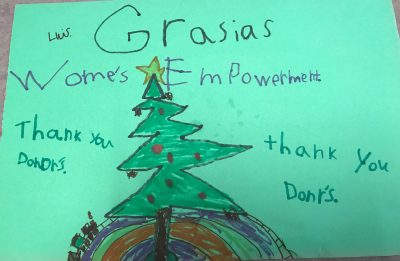 Luis.
Grasias
Wome's Empowerment.
Thank You
Donor's.
thank You
Donr's.